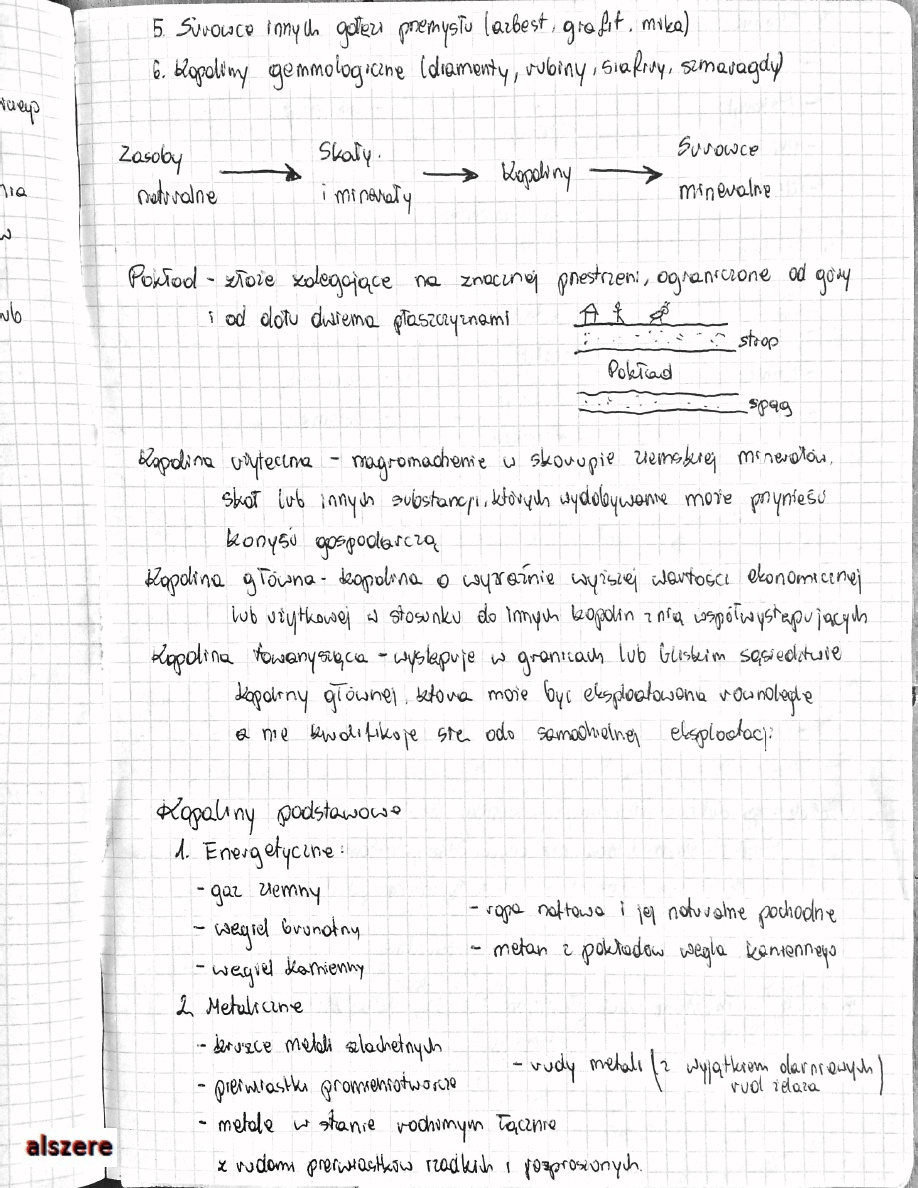 5. Surowce innych gałęzi przemysłu (azbest, grafit, mika)
6. Kopaliny gemmologiczne (diamenty, rubiny, szafiry, szmaragdy)
Zasoby naturalne → Skały i minerały → Kopaliny → Surowce mineralne
Pokład - złoże zalegające na znacznej przestrzeni, ograniczone od góry
i od dołu dwiema płaszczyznami
strop
Pokład
spąg
Kopalina użyteczna - nagromadzenie w skorupie ziemskiej minerałów,
skał lub innych substancji, których wydobywanie może przynieść
korzyść gospodarczą
Kopalina główna - kopalina o wyraźnie wyższej wartości ekonomicznej
lub użytkowej w stosunku do innych kopalin z nią współwystępujących
Kopalina towarzysząca - występuje w granicach lub bliskim sąsiedztwie
kopaliny głównej, która może być eksploatowana równolegle
a nie kwalifikuje się odo samodzielnej eksploatacji
Kopaliny podstawowe
1. Energetyczne:
- gaz ziemny
- węgiel brunatny
- węgiel kamienny
- ropa naftowa i jej naturalne pochodne
- metan z pokładów węgla kamiennego
2. Metaliczne
- kruszce metali szlachetnych
- pierwiastki promieniotwórcze
- metale w stanie rodzimym łącznie
z rudami pierwiastków rzadkich i rozproszonych.
- rudy metali (z wyjątkiem darniowych rud żelaza)
alszere